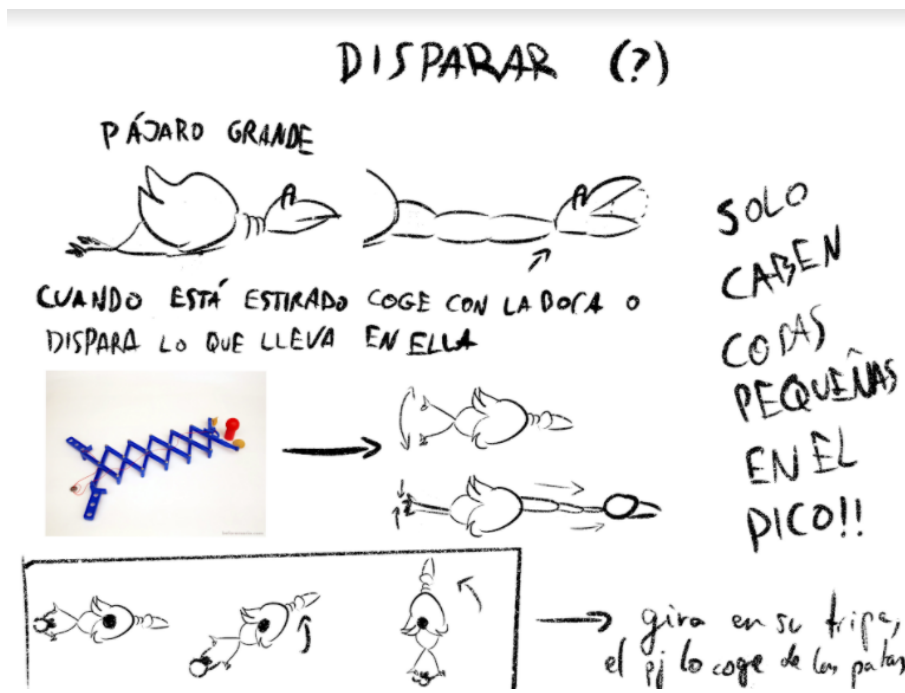 DISPARAR (?)
PÁJARO GRANDE
CUANDO ESTÁ ESTIRADO COGE CON LA BOCA O
DISPARA LO QUE LLEVA EN ELLA
SOLO
CABEN
COSAS
PEQUEÑAS
EN EL
PICO!!
gira en su tripa,
el pj lo coge de las patas